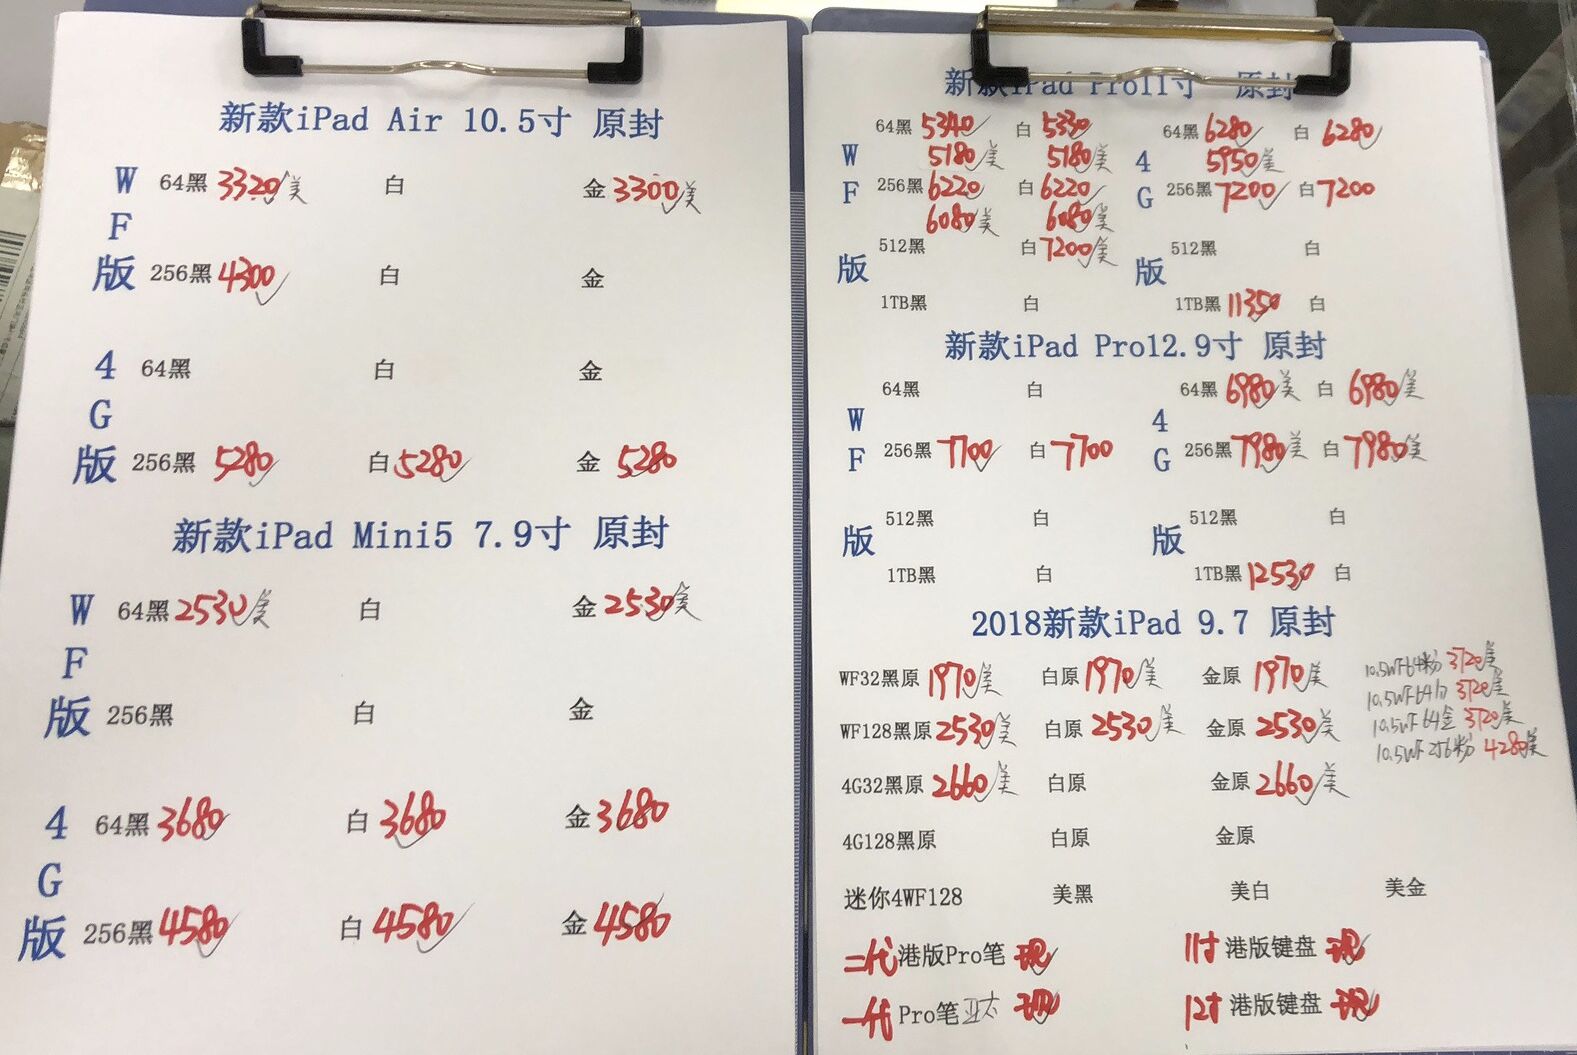 新款iPad Air 10.5寸 原封
WF版
64黑 3320美 白 金 3300美
256黑 4300 白 金
4G版
64黑 白 金
256黑 5280 白 5280 金 5280
新款iPad Mini5 7.9寸 原封
WF版
64黑 2530美 白 金 2530美
256黑 白 金
4G版
64黑 3680 白 3680 金 3680
256黑 4580 白 4580 金 4580
新款iPad Pro11寸 原封
WF版
64黑 5340 白 5330
5180美 5180美
256黑 6220 白 6220
6080美 6080美
512黑 白 7200美
1TB黑 白
4G版
64黑 6280 白 6280
5950美
256黑 7200 白 7200
512黑 白
1TB黑 11350 白
新款iPad Pro12.9寸 原封
WF版
64黑 白
256黑 7700 白 7700
512黑 白
1TB黑 白
4G版
64黑 6980美 白 6980美
256黑 7980美 白 7980美
512黑 白
1TB黑 12530 白
2018新款iPad 9.7 原封
WF32黑原 1970美 白原 1970美 金原 1970美
WF128黑原 2530美 白原 2530美 金原 2530美
4G32黑原 2660美 白原 金原 2660美
4G128黑原 白原 金原
迷你4WF128 美黑 美白 美金
二代 港版Pro笔 现 11寸 港版键盘 现
一代 Pro笔 亚太 现 12寸 港版键盘 现
10.5WF64粉 3720美
10.5WF64白 3720美
10.5WF64金 3720美
10.5WF256粉 4280美